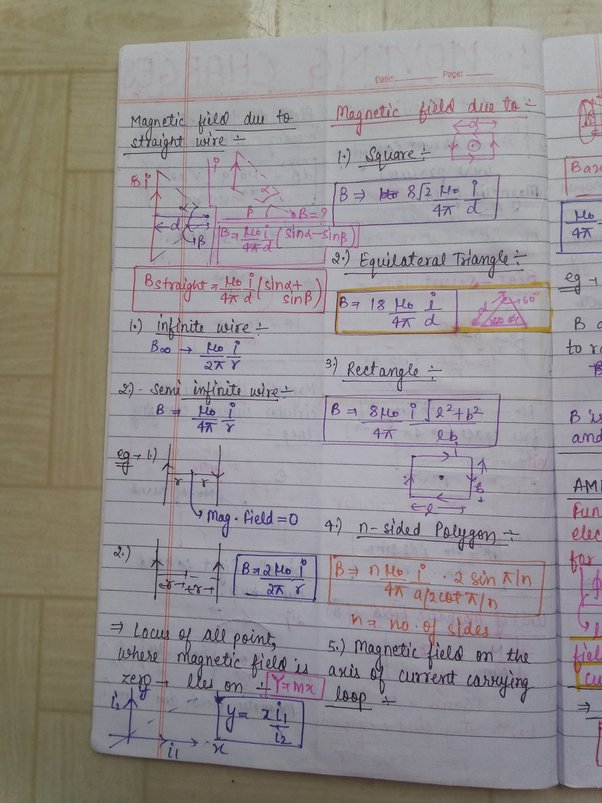 Date: Page:
Magnetic field due to
straight wire ÷
B i
i
d
α
β
α
β
B = ?
B = μ0/4π i/d (sinα - sinβ)
Bstraight = μ0/4π i/d (sinα + sinβ)
1.) infinite wire ÷
B∞ → μ0/2π i/r
2) - semi infinite wire ÷
B ⇒ μ0/4π i/r
eg → 1.)
r r
Mag. field = 0
2.)
r r
B = 2μ0/2π i/r
⇒ Locus of all point,
where magnetic field is
zero → lies on ÷ Y=mx
y
i2
i1 x
y = x i1/i2
Magnetic field due to ÷
d
1.) Square ÷
B ⇒ 8√2 μ0/4π i/d
2.) Equilateral Triangle ÷
B = 18 μ0/4π i/d
d 60°
60
3) Rectangle ÷
B ⇒ 8μ0/4π i √l²+b²/lb
i
b
l
4.) n-sided Polygon ÷
B ⇒ n μ0/4π i/a/2cot π/n · 2 sin π/n
n = no. of sides
5.) Magnetic field on the
axis of current carrying
loop ÷
μ0
4π
eg →
B
to
B
and
AM
Fun
elec
for
fiel
cu
⇒